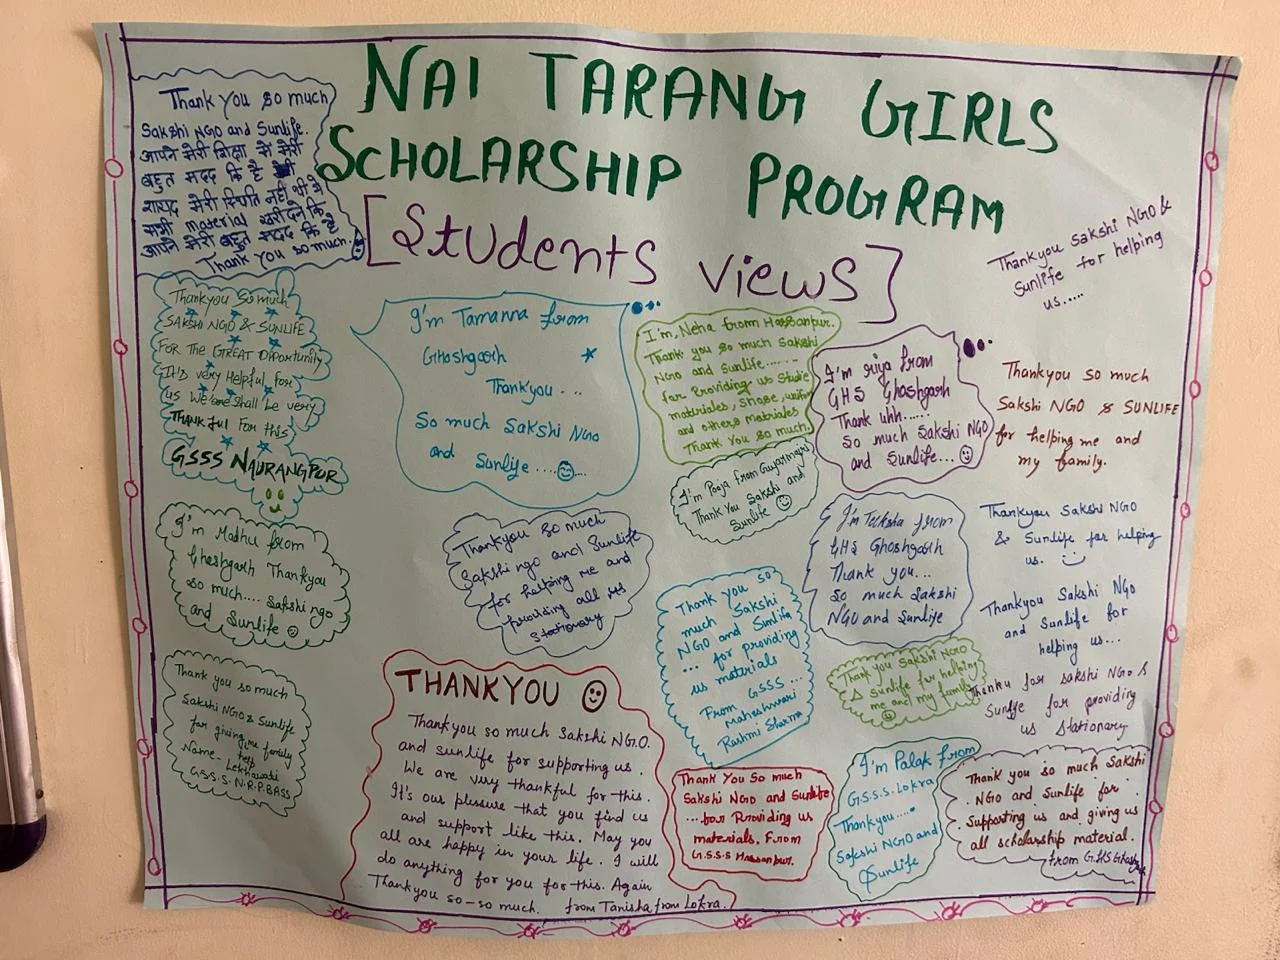 NAI TARANG GIRLS
SCHOLARSHIP PROGRAM
[Students views]
Thank you so much
Sakshi NGO and Sunlife.
आपने मेरी शिक्षा में मेरी
बहुत मदद कि है
शायद मेरी स्थिति नहीं थी मे
सभी material खरीदने कि
आपने मेरी बहुत मदद कि है
Thank you so much.
Thankyou so much
SAKSHI NGO & SUNLIFE
FOR the GREAT Opportunity
It's very Helpful for
us We are shall be very
THANKful For this
GSSS NAURANGPUR
I'm Tamanna from
Ghoshgarh
Thankyou ...
So much Sakshi NGO
and Sunlife ....
I'm, Neha from Hassanpur.
Thank you so much Sakshi
NGO and Sunlife......
for Providing us Studie
materiales, shose, uniform
and others materiales
Thank You so much.
I'm riya from
GHS Ghoshgarh
Thank uhh......
So much Sakshi NGO
and Sunlife...
Thankyou Sakshi NGO &
Sunlife for helping
us.....
Thankyou so much
Sakshi NGO & SUNLIFE
for helping me and
my family.
I'm Pooja from Gujarmajri
Thank You Sakshi and
Sunlife
I'm Madhu from
Ghoshgarh Thankyou
so much.... Sakshi ngo
and Sunlife
Thankyou so much
Sakshi ngo and Sunlife
for helping me and
providing all us
Stationary
I'm Teeksha from
GHS Ghoshgarh
Thank you...
So much Sakshi
NGO and Sunlife
Thankyou Sakshi NGO
& Sunlife for helping
us.
Thank you so
much Sakshi
NGO and Sunlife
... for providing
us materials
From GSSS ...
Maheshwari
Rashmi Sharma
Thankyou Sakshi NGO
and Sunlife for
helping us...
Thank you Sakshi NGO
& Sunlife for helping
me and my family
Thanku for Sakshi NGO &
Sunlife for providing
us Stationary
Thank you so much
Sakshi NGO & Sunlife
for giving me family
help
Name - Lekhawati
G.S.S.S. N.R.P.BASS
THANKYOU
Thankyou so much Sakshi N.G.O.
and sunlife for supporting us.
We are very thankful for this.
It's our plesure that you find us
and support like this. May you
all are happy in your life. I will
do anything for you for this. Again
Thankyou so-so much. from Tanisha from Lokra.
Thank You So much
Sakshi NGO and Sunlife
...for Providing us
materials. From
G.S.S.S Hassanpur.
I'm Palak from
G.S.S.S. Lokra
Thankyou....
Sakshi NGO and
Sunlife
Thank you so much Sakshi
NGO and Sunlife for
Supporting us and giving us
all scholarship material.
from GHS